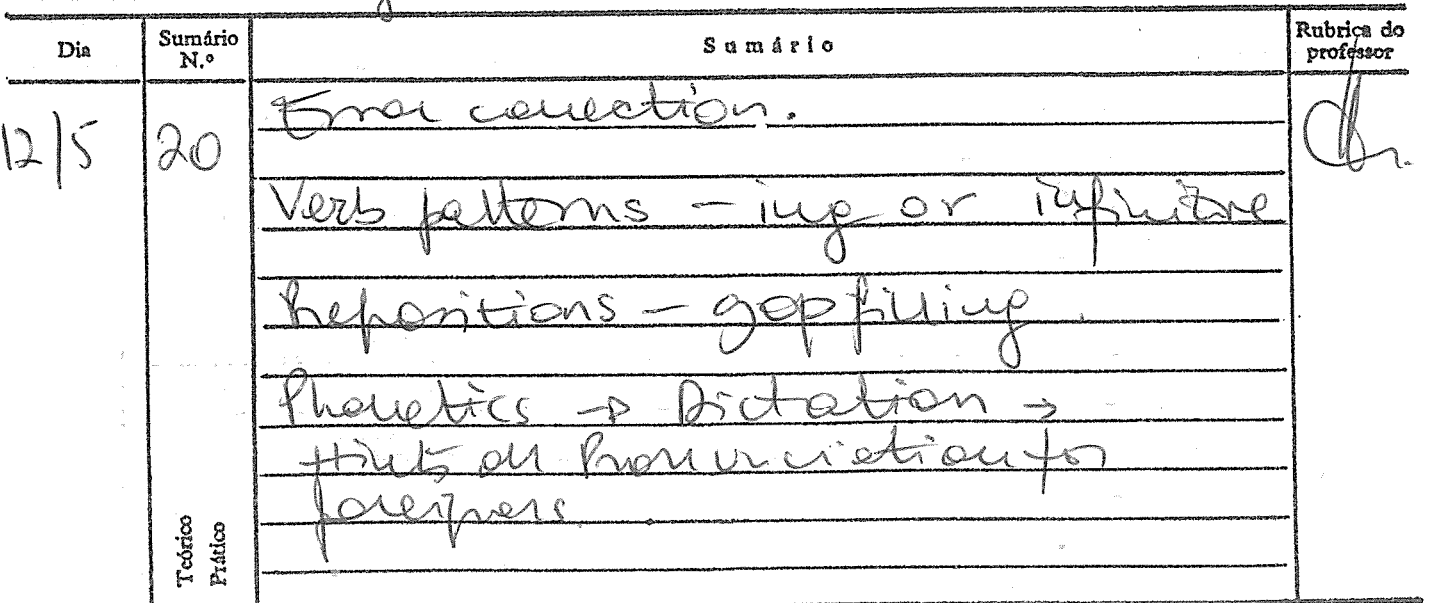 Dia
Sumário N.º
Sumário
Rubrica do professor
12/5
20
Error correction.
Verb patterns - ing or infinitive
Prepositions - gap filling.
Phonetics → Dictation →
Hints on Pronunciation for
foreigners
Teórico
Prático